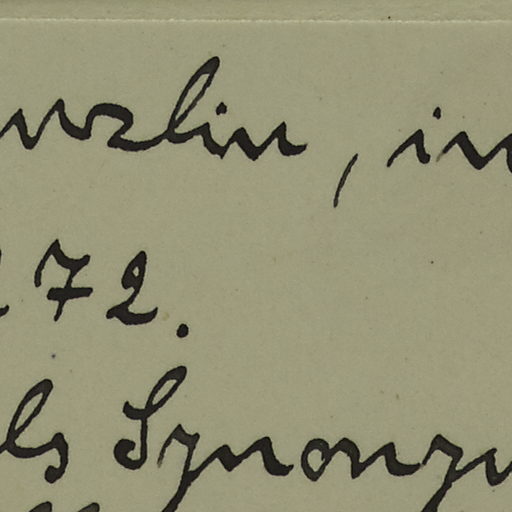 nzlin, in
72.
ls Synony